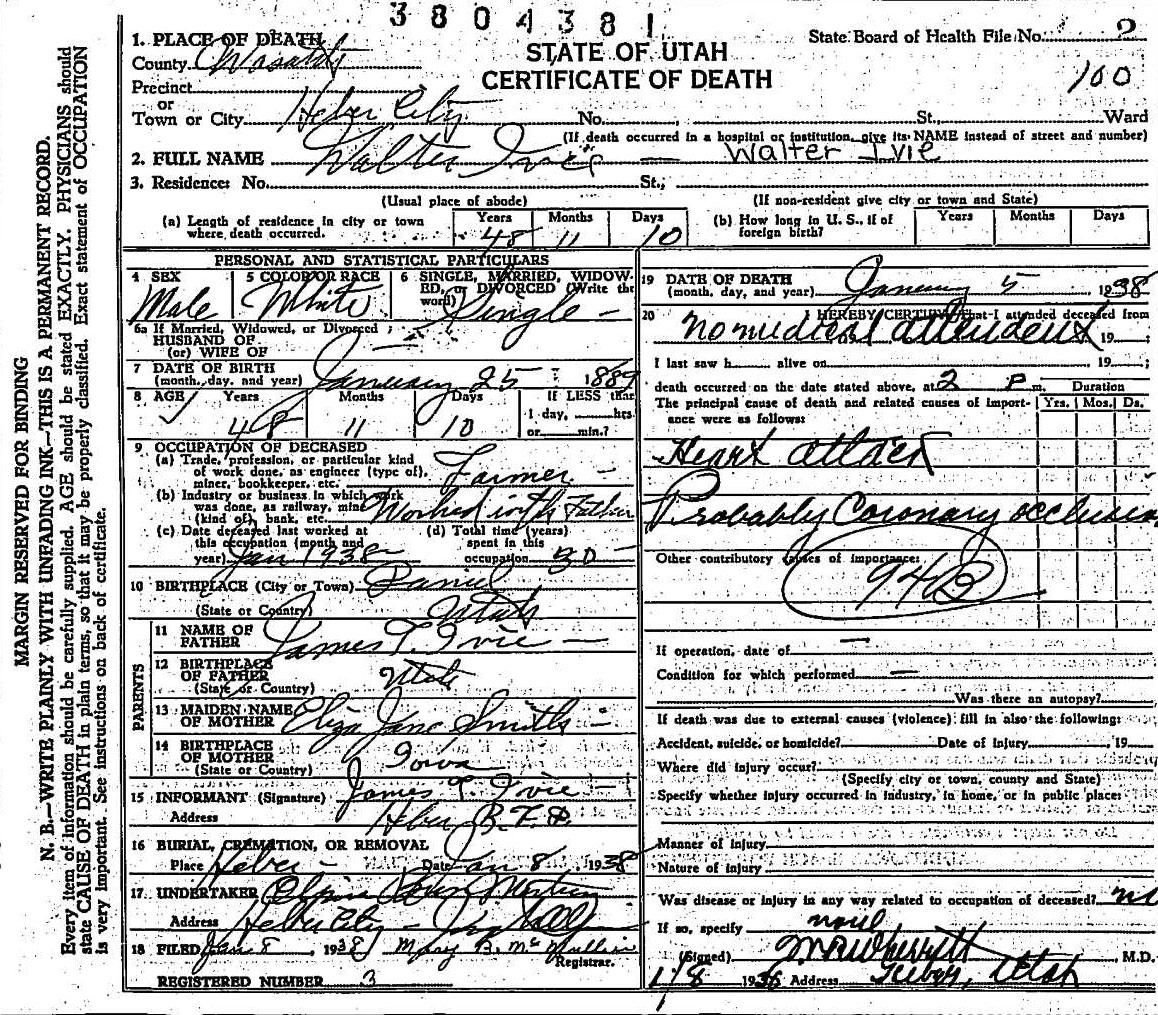 3804381
MARGIN RESERVED FOR BINDING
N. B.—WRITE PLAINLY WITH UNFADING INK—THIS IS A PERMANENT RECORD.
Every item of information should be carefully supplied. AGE should be stated EXACTLY. PHYSICIANS should
state CAUSE OF DEATH in plain terms, so that it may be properly classified. Exact statement of OCCUPATION
is very important. See instructions on back of certificate.
STATE OF UTAH
CERTIFICATE OF DEATH
State Board of Health File No. 2
100
1. PLACE OF DEATH
County Wasatch
Precinct
or
Town or City Heber City No. St., Ward
(If death occurred in a hospital or institution, give its NAME instead of street and number)
2. FULL NAME Walter Ivie — Walter Ivie
3. Residence: No. St.,
(Usual place of abode) (If non-resident give city or town and State)
(a) Length of residence in city or town where death occurred. Years 48 Months 11 Days 10
(b) How long in U. S., if of foreign birth? Years Months Days
PERSONAL AND STATISTICAL PARTICULARS
4 SEX Male
5 COLOR OR RACE White
6 SINGLE, MARRIED, WIDOWED, or DIVORCED (Write the word) Single
6a If Married, Widowed, or Divorced
HUSBAND OF
(or) WIFE OF
7 DATE OF BIRTH
(month, day, and year) January 25 1889
8 AGE Years 48 Months 11 Days 10 If LESS than
1 day, hrs.
or min.?
9 OCCUPATION OF DECEASED
(a) Trade, profession, or particular kind
of work done, as engineer (type of),
miner, bookkeeper, etc. Farmer
(b) Industry or business in which work
was done, as railway, mine
(kind of), bank, etc. Worked with Father
(c) Date deceased last worked at
this occupation (month and
year) Jan 1938
(d) Total time (years)
spent in this
occupation 30
10 BIRTHPLACE (City or Town) Daniel
(State or Country) Utah
PARENTS
11 NAME OF
FATHER James T. Ivie
12 BIRTHPLACE
OF FATHER
(State or Country) Utah
13 MAIDEN NAME
OF MOTHER Eliza Jane Smith
14 BIRTHPLACE
OF MOTHER
(State or Country) Iowa
15 INFORMANT (Signature) James T. Ivie
Address Heber R.F.D.
16 BURIAL, CREMATION, OR REMOVAL
Place Heber Date Jan 8 1938
17 UNDERTAKER
Address Heber City
18 FILED Jan 8 1938 May B. Registrar.
REGISTERED NUMBER 3
19 DATE OF DEATH
(month, day, and year) January 5 1938
20 I HEREBY CERTIFY that I attended deceased from
No medical attendent 19 ;
I last saw h alive on 19 ;
death occurred on the date stated above, at 2 P m.
Duration
The principal cause of death and related causes of importance were as follows: Yrs. Mos. Ds.
Heart attack
Probably Coronary occlusion
Other contributory causes of importance:
94B
If operation, date of —
Condition for which performed —
Was there an autopsy?
If death was due to external causes (violence) fill in also the following:
Accident, suicide, or homicide? Date of Injury , 19
Where did injury occur?
(Specify city or town, county and State)
Specify whether injury occurred in industry, in home, or in public place:
Manner of Injury
Nature of Injury
Was disease or injury in any way related to occupation of deceased? no
If so, specify
(Signed) , M.D.
1/8 1936 Address Heber, Utah